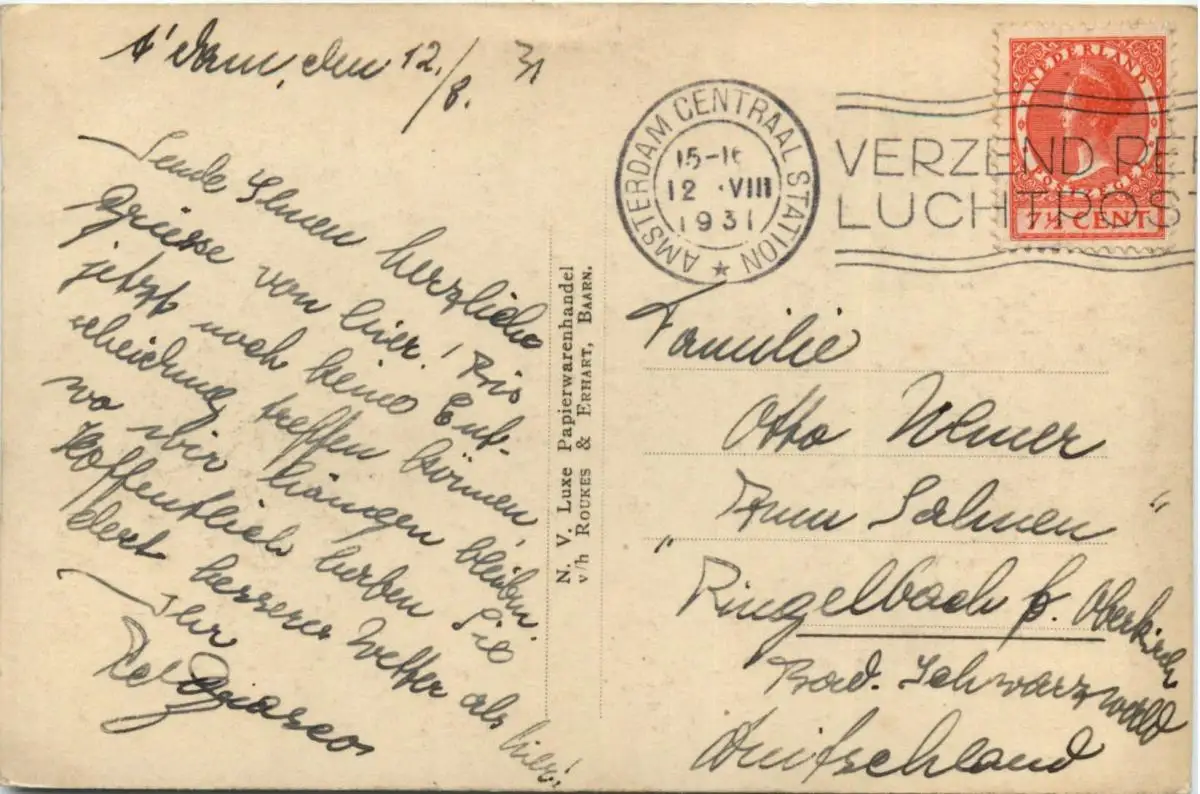 A'dam, den 12./8. 31
Sende Ihnen herzliche
Grüsse von hier! Bis
jetzt noch keine Ent-
scheidung treffen können,
wo wir hängen bleiben.
Hoffentlich haben Sie
dort besseres Wetter als hier!
Ihr
N. V. Luxe Papierwarenhandel
v/h ROUKES & ERHART, BAARN.
AMSTERDAM CENTRAAL STATION
15-16
12 VIII
1931
VERZEND PER
LUCHTPOST
NEDERLAND
POSTZEGEL
7½ CENT
Familie
Otto Ulmer
"Zum Salmen"
Ringelbach b. Oberkirch
Bad. Schwarzwald
Deutschland